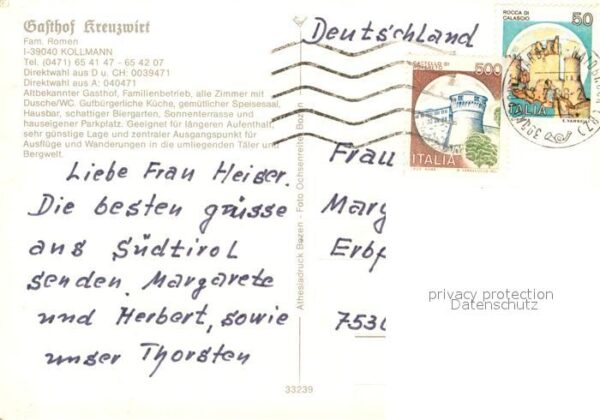 Gasthof Kreuzwirt
Fam. Romen
I-39040 KOLLMANN
Tel. (0471) 65 41 47 - 65 42 07
Direktwahl aus D u. CH: 0039471
Direktwahl aus A: 040471
Altbekannter Gasthof, Familienbetrieb, alle Zimmer mit
Dusche/WC. Gutbürgerliche Küche, gemütlicher Speisesaal,
Hausbar, schattiger Biergarten, Sonnenterrasse und
hauseigener Parkplatz. Geeignet für längeren Aufenthalt,
sehr günstige Lage und zentraler Ausgangspunkt für
Ausflüge und Wanderungen in die umliegenden Täler und
Bergwelt.
Liebe Frau Heiser.
Die besten grüsse
aus Südtirol
senden. Margarete
und Herbert, sowie
unser Thorsten
Athesiadruck Bozen - Foto Ochsenreiter Bozen
33239
Deutschland
ROCCA DI
CALASCIO
50
ITALIA
CASTELLO DI
ROVERETO
500
ITALIA
Frau
Marg
Erbp
7530
privacy protection
Datenschutz